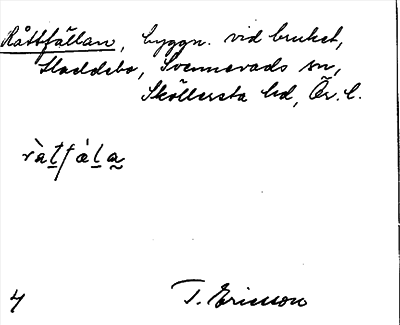 Råttfällan, byggn. vid bruket,
Haddebo, Svennevads sn,
Sköllersta hd, Ör. l.
ràt̲fál̲a̰
4
T. Ericsson